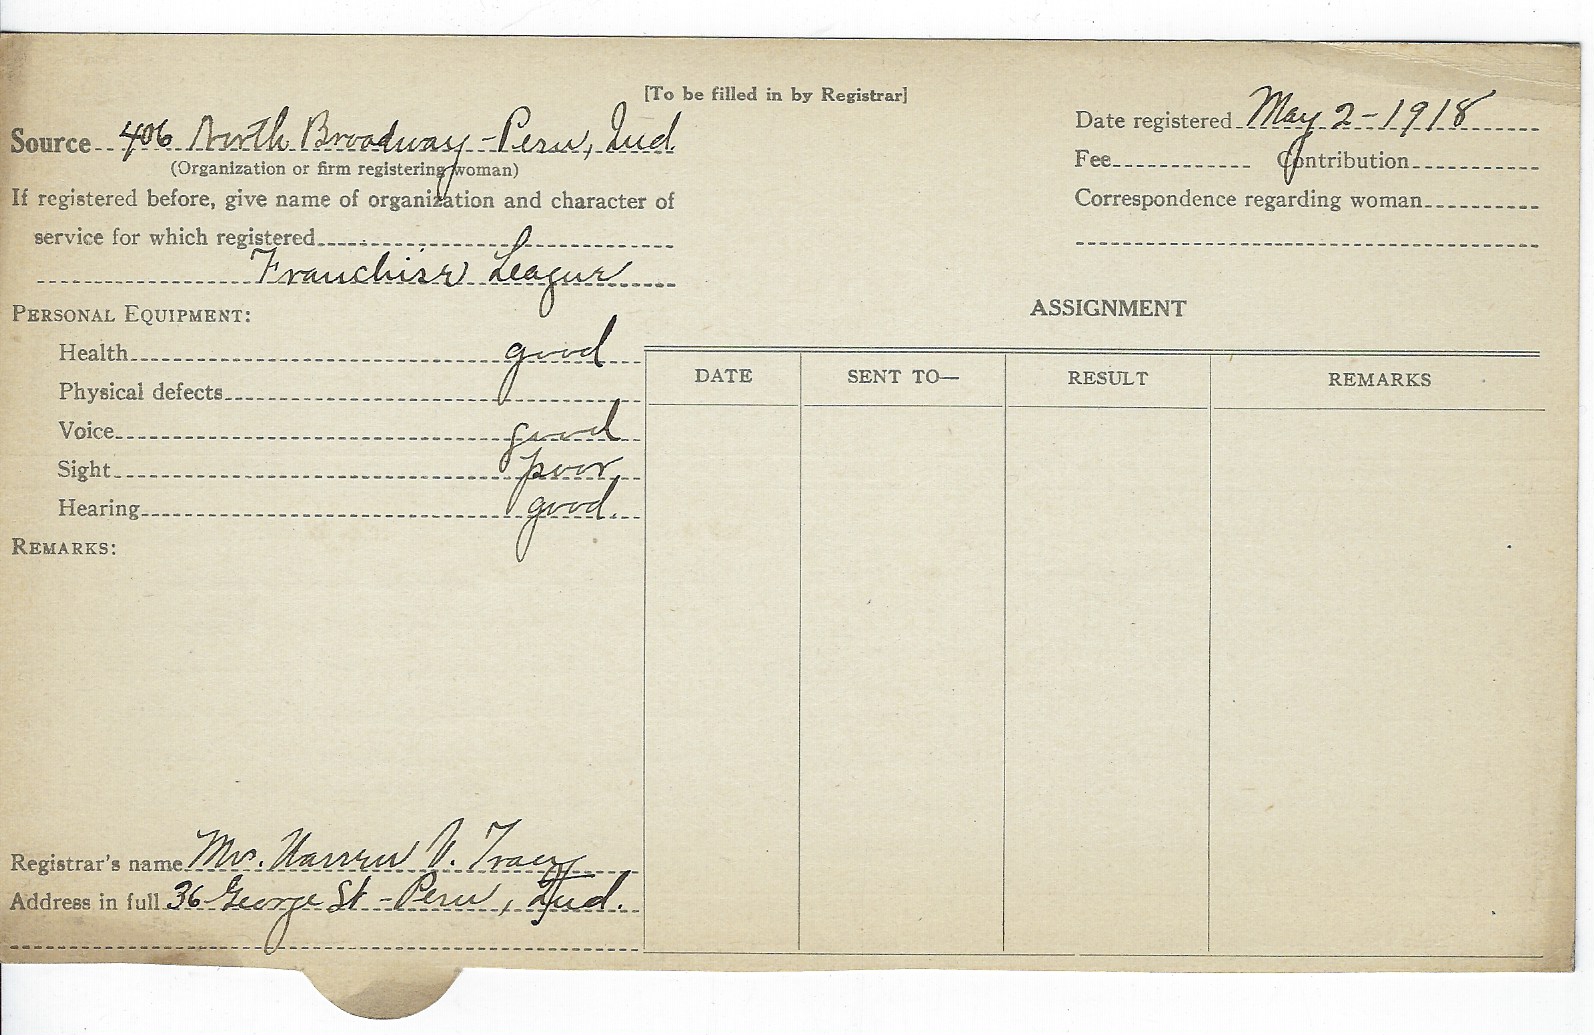 [To be filled in by Registrar]
Source 406 North Broadway - Peru, Ind
(Organization or firm registering woman)
If registered before, give name of organization and character of
service for which registered
Franchise League
PERSONAL EQUIPMENT:
Health good
Physical defects
Voice good
Sight poor
Hearing good.
REMARKS:
Registrar's name Mrs. Warren V. Tracy
Address in full 36 George St - Peru, Ind.
Date registered May 2 - 1918
Fee Contribution
Correspondence regarding woman
ASSIGNMENT
DATE SENT TO— RESULT REMARKS